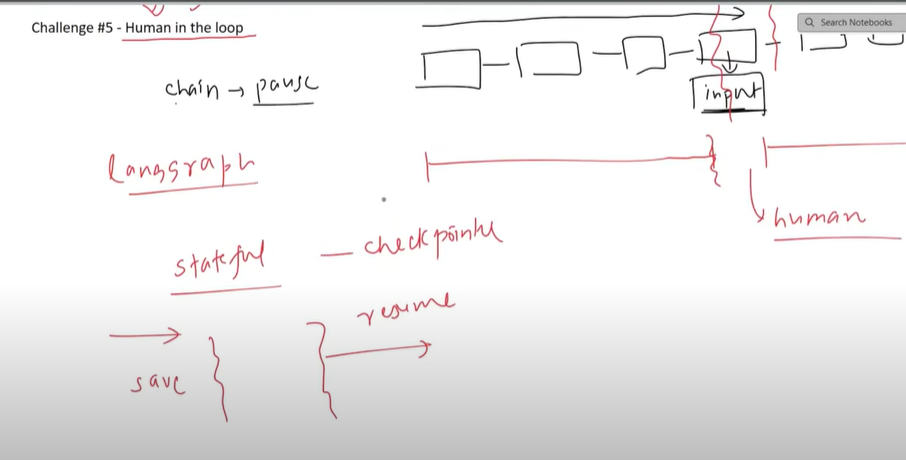 Challenge #5 - Human in the loop
Search Notebooks
chain → pause
input
langgraph
human
stateful — checkpointer
resume
save